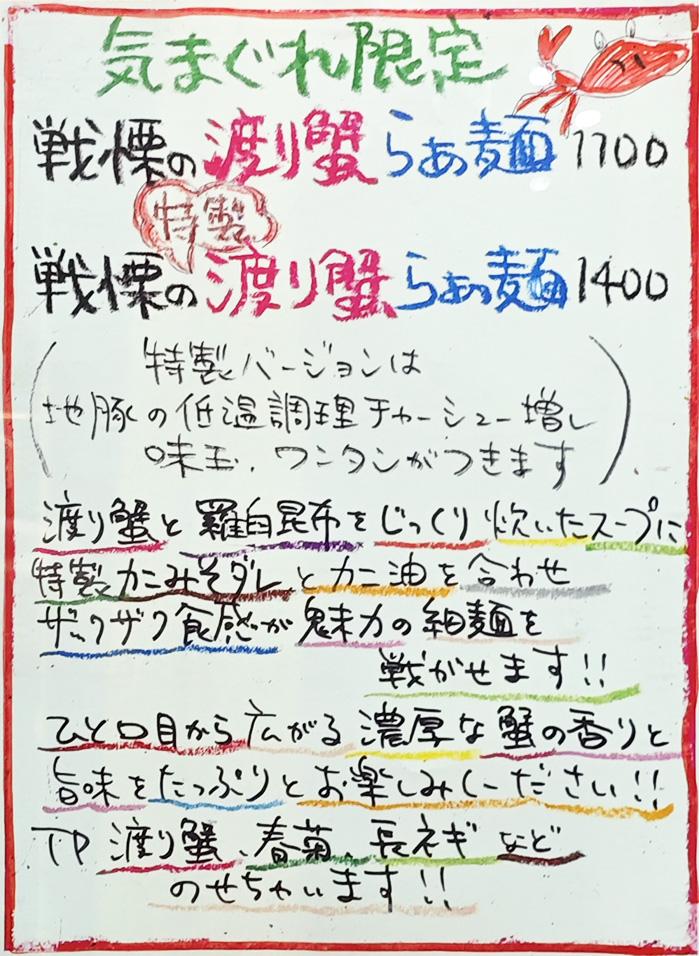 気まぐれ限定
戦慄の渡り蟹らぁ麺1100
特製
戦慄の渡り蟹らぁ麺1400
(特製バージョンは
地豚の低温調理チャーシュー増し
味玉、ワンタンがつきます)
渡り蟹と羅臼昆布をじっくり炊いたスープに
特製カニみそダレとカニ油を合わせ
ザックザク食感が魅力の細麺を
戦がせます!!
ひと口目から広がる濃厚な蟹の香りと
旨味をたっぷりとお楽しみくーださい!!
TP 渡り蟹、春菊、長ネギなど
のせちゃいます!!